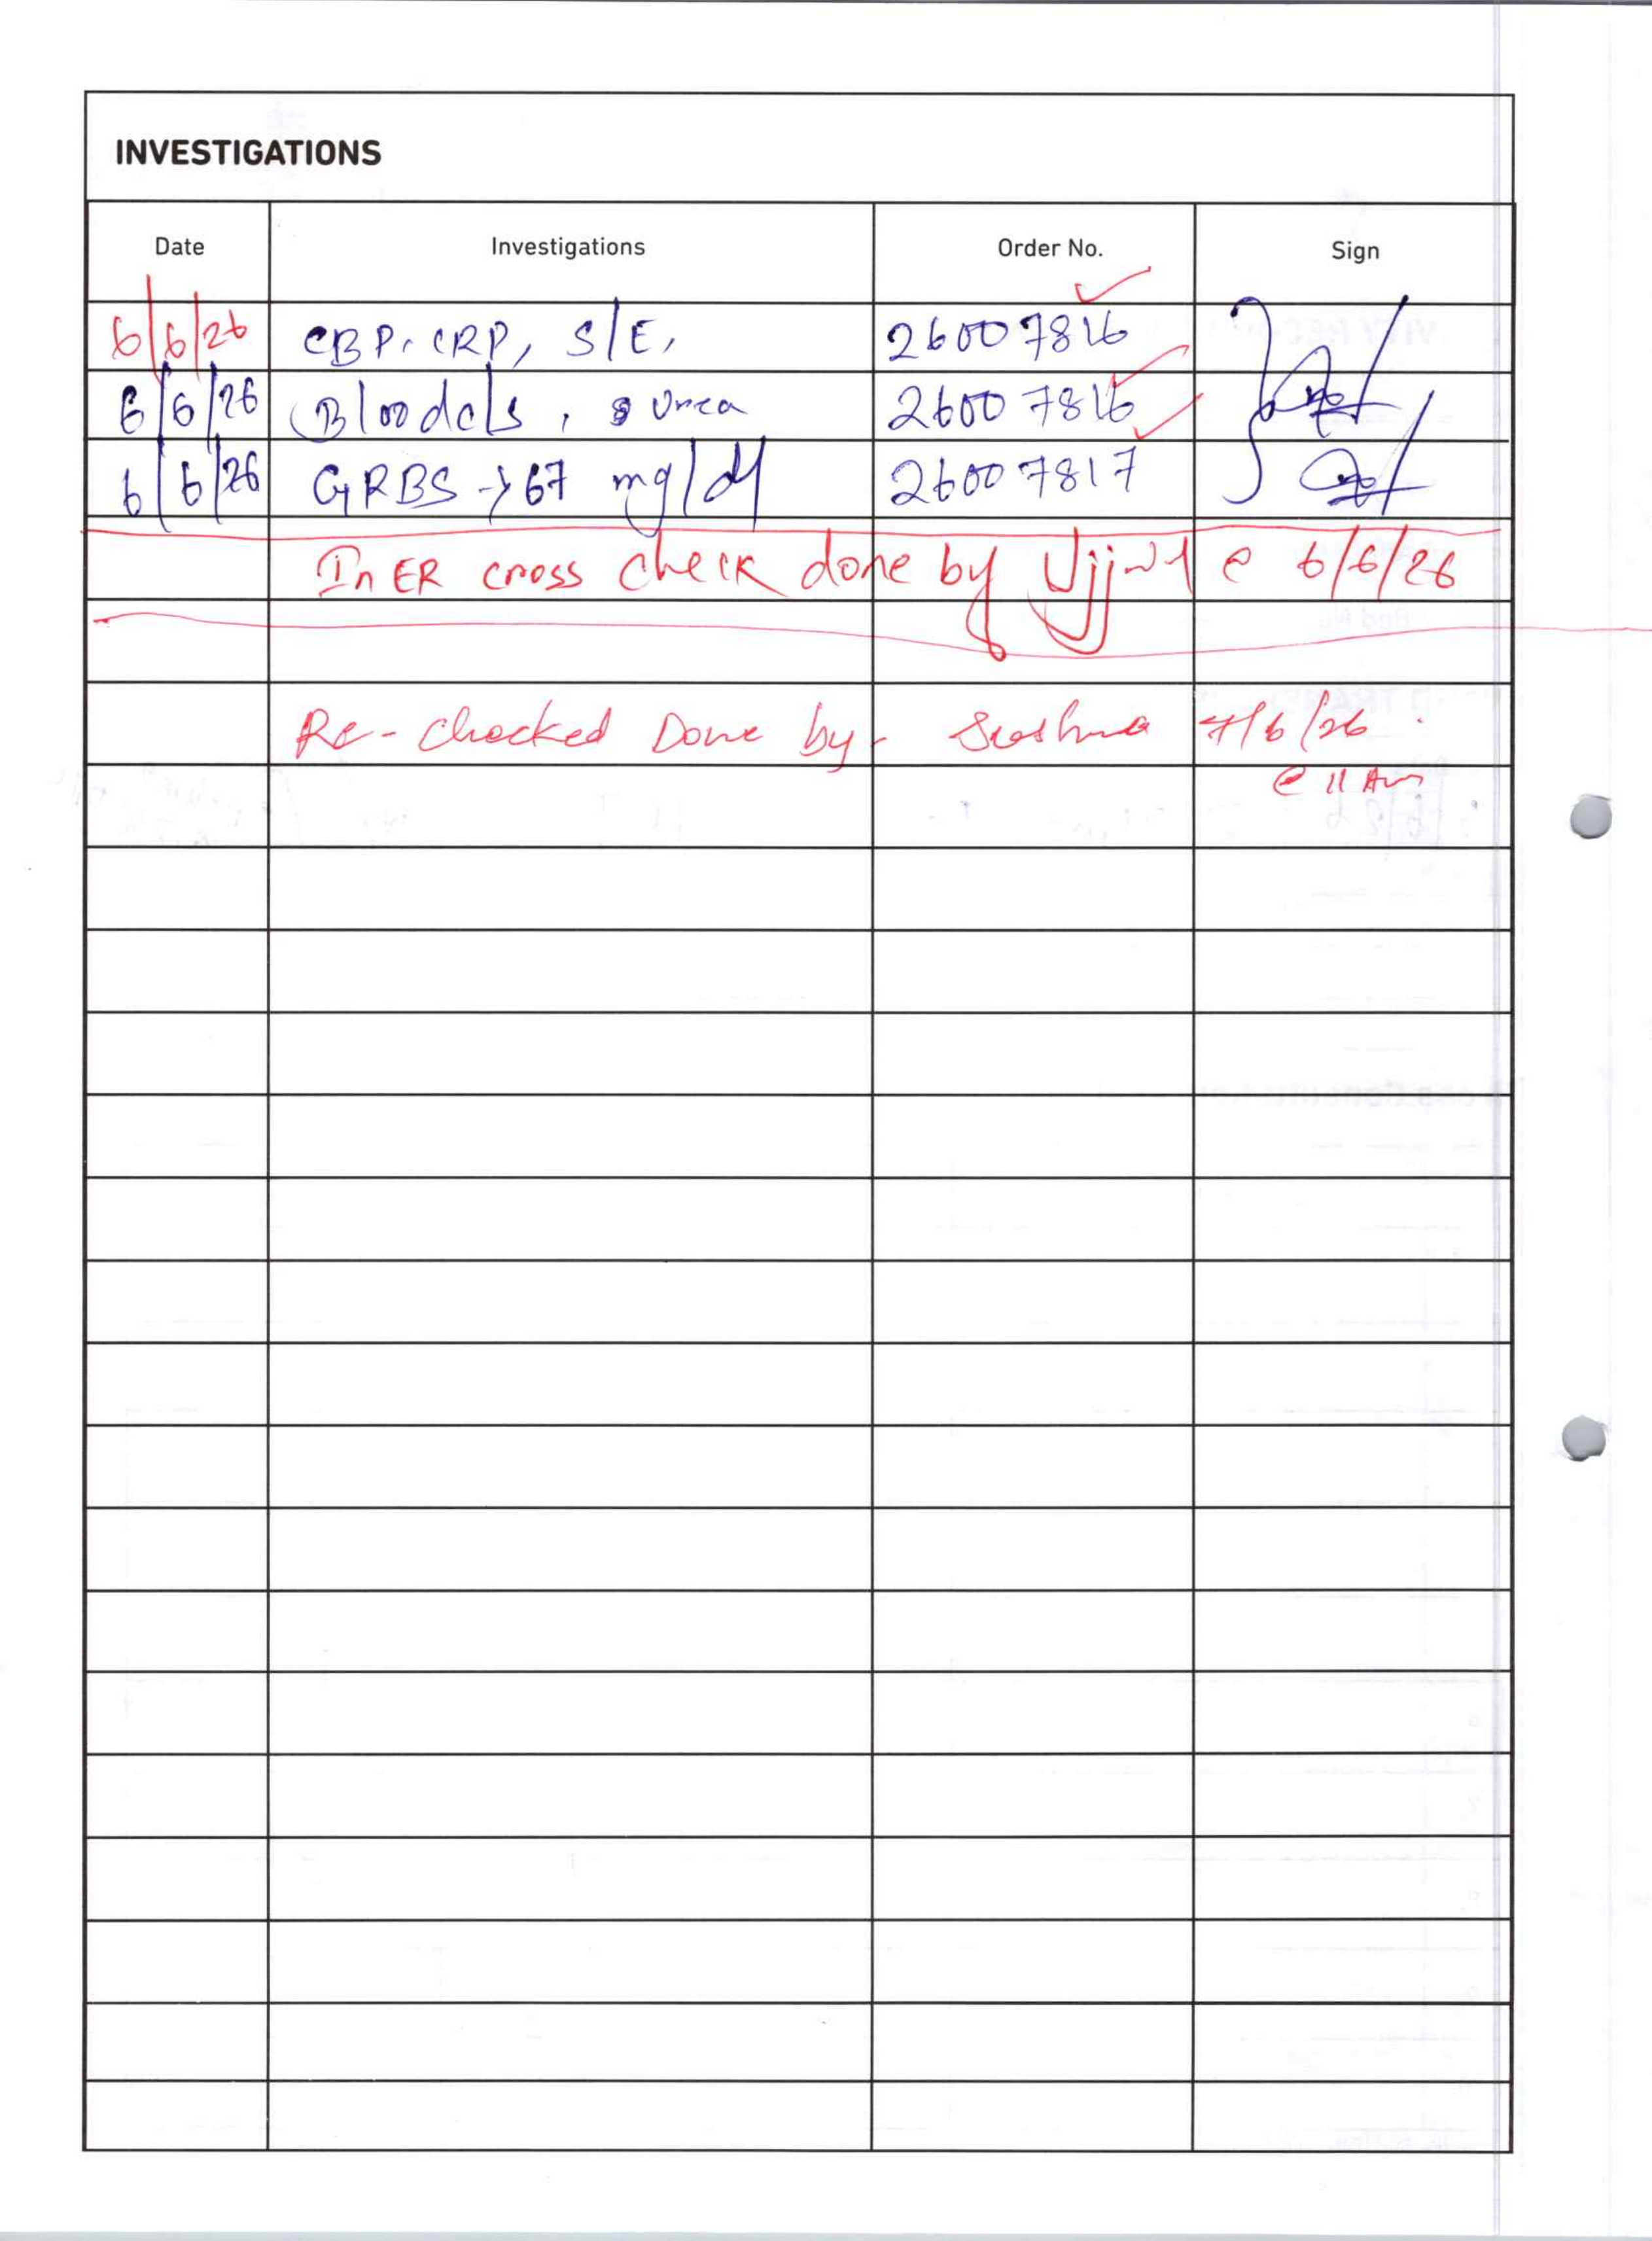 INVESTIGATIONS
Date Investigations Order No. Sign
6/6/26 CBP, CRP, S/E, 26007816
6/6/26 Blood cls, s urea 26007816
6/6/26 GRBS → 67 mg/dl 26007817
In ER cross check done by @ 6/6/26
Re-Checked Done by- Sushma 7/6/26
@ 11 Am